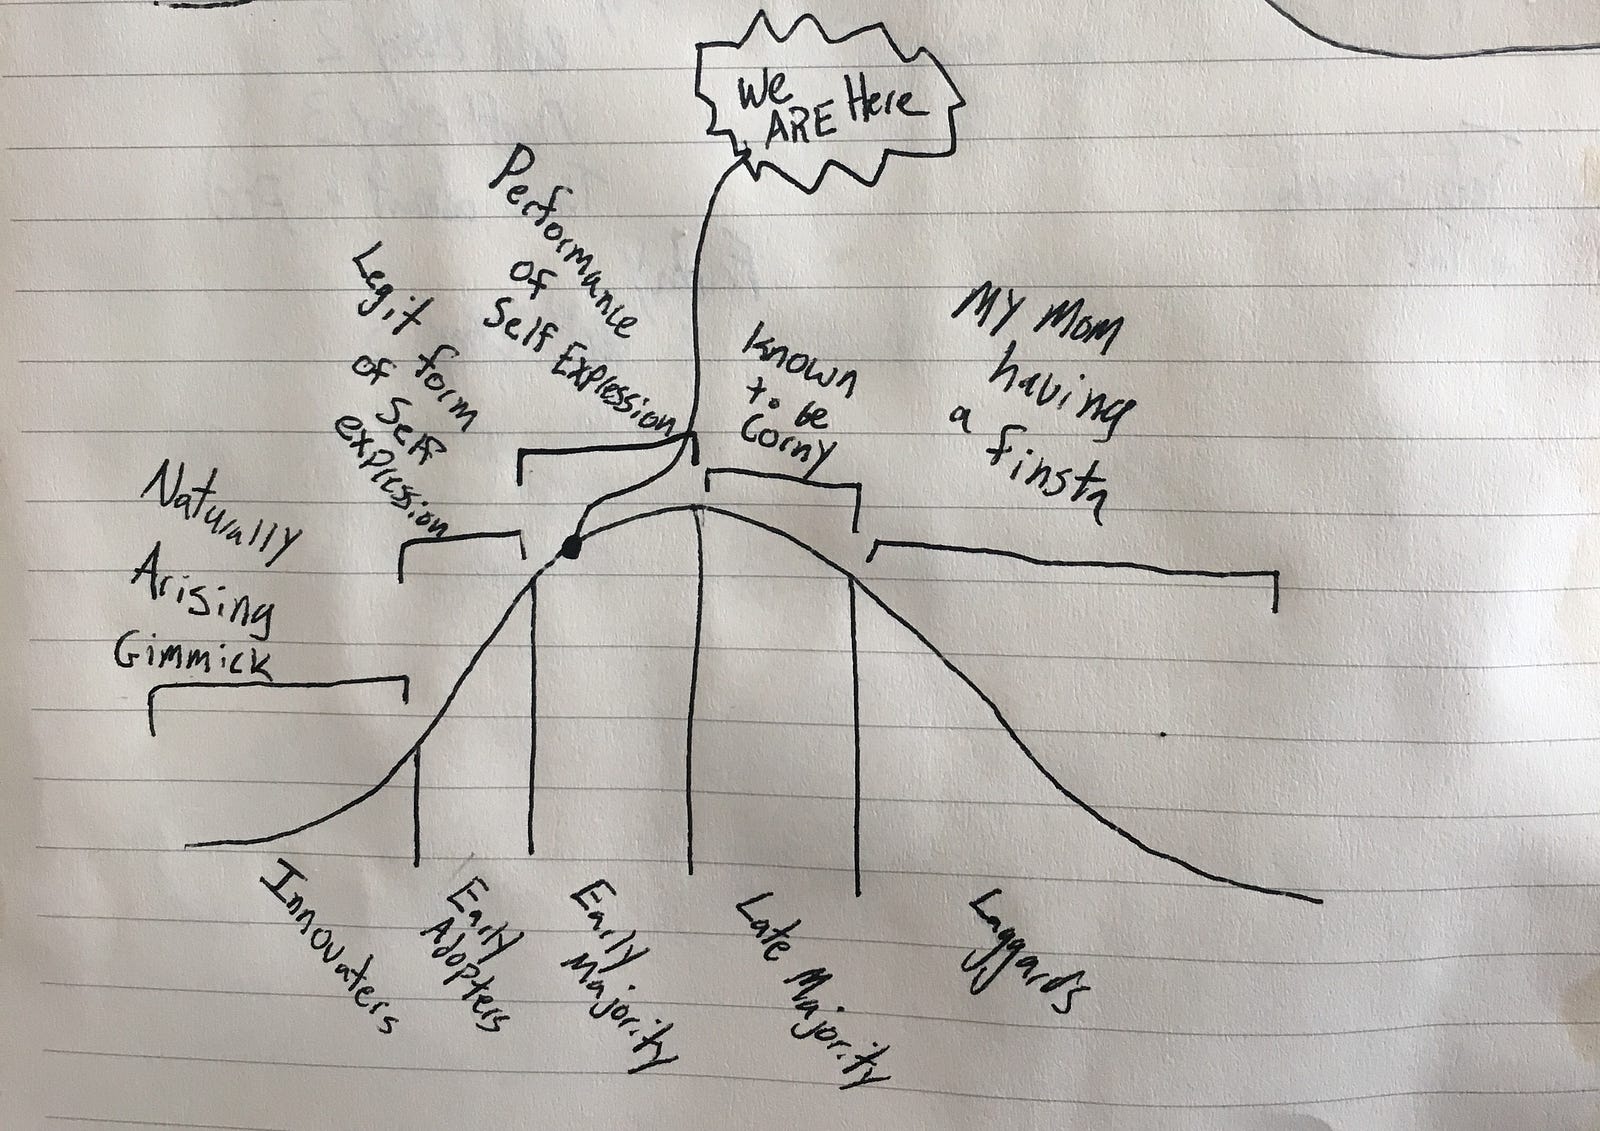 We
ARE Here
Performance
of
Self Expression
Legit form
of Self
expression
Known
to be
Corny
MY MOM
having
a finsta
Naturally
Arising
Gimmick
Innovaters
Early
Adopters
Early
Majority
Late Majority
Laggards